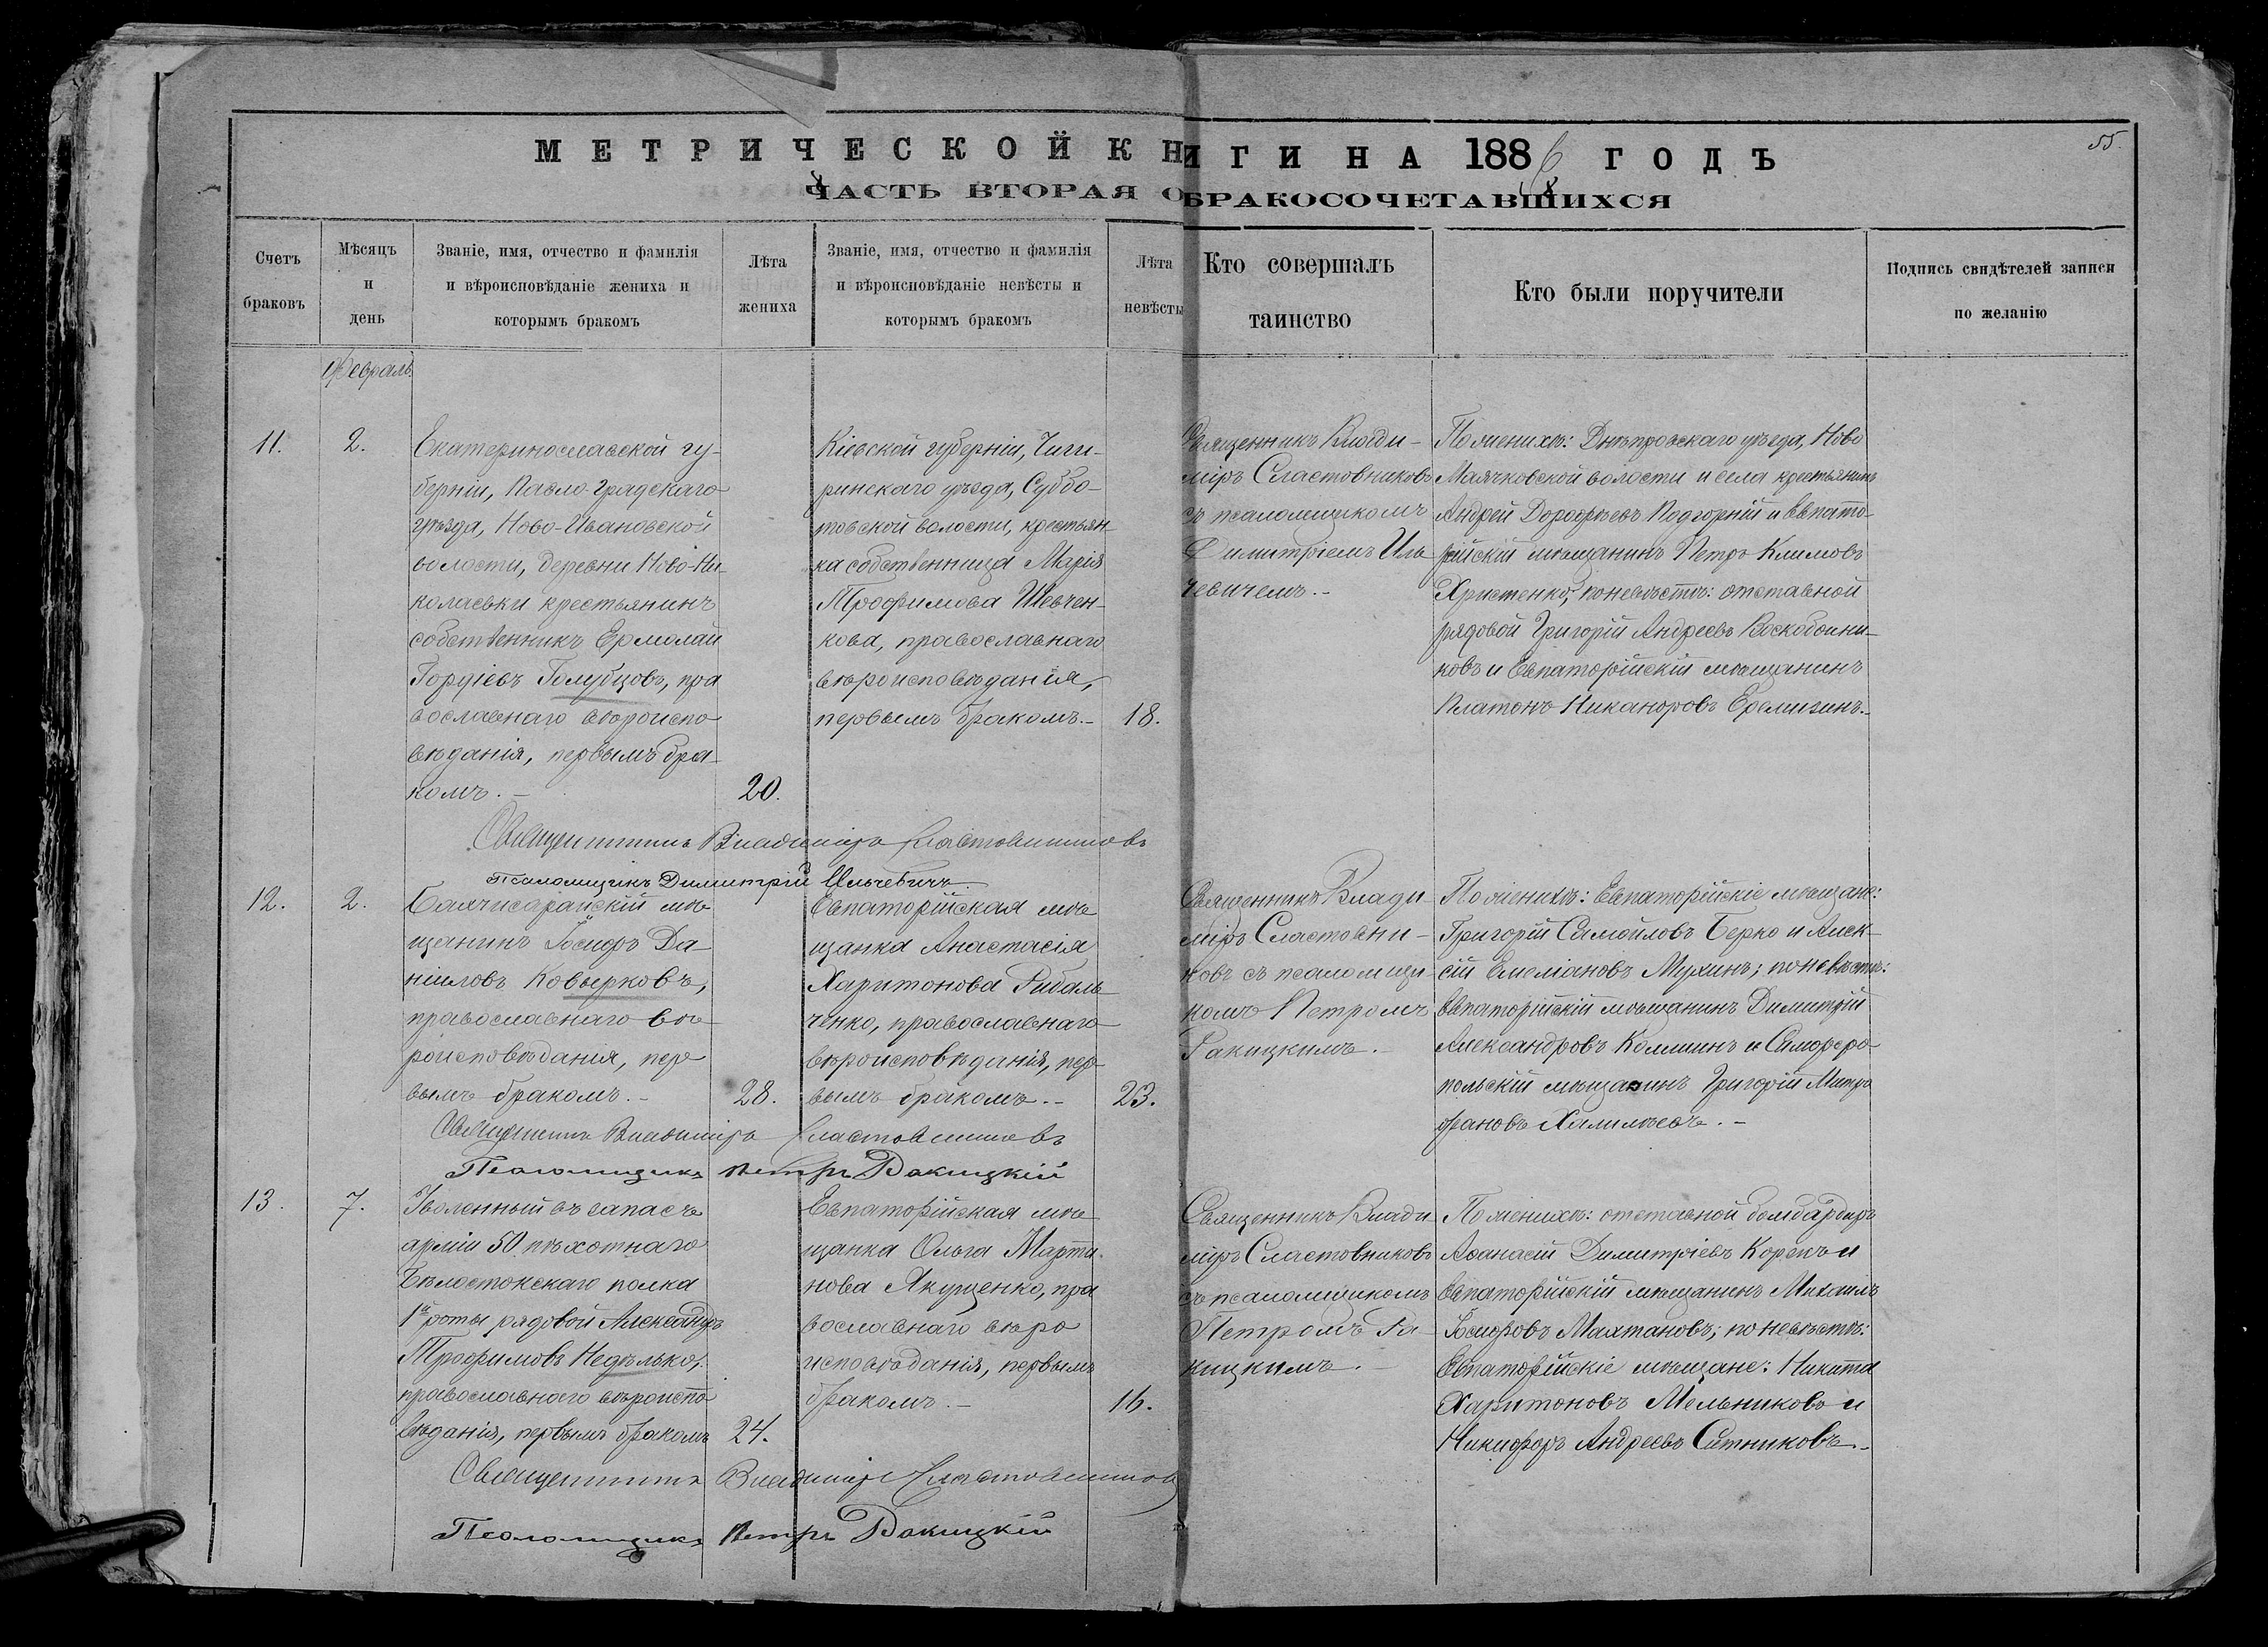 МЕТРИЧЕСКОЙ КНИГИ НА 1886 ГОДЪ
55.
ЧАСТЬ ВТОРАЯ О БРАКОСОЧЕТАВШИХСЯ
Счетъ
браковъ
Мѣсяцъ
и
день
Званіе, имя, отчество и фамилія
и вѣроисповѣданіе жениха и
которымъ бракомъ
Лѣта
жениха
Званіе, имя, отчество и фамилія
и вѣроисповѣданіе невѣсты и
которымъ бракомъ
Лѣта
невѣсты
Кто совершалъ
таинство
Кто были поручители
Подпись свидѣтелей записи
по желанію
Февраль.
11.
2.
Екатеринославской гу-
берніи, Павло-градскаго
уѣзда, Ново-Ивановской
волости, деревни Ново-Ни-
колаевки крестьянинъ
собственникъ Ермолай
Гордіевъ Голубцовъ, пра
вославнаго вѣроиспо
вѣданія, первымъ бра-
комъ. –
20.
Кіевской губерніи, Чиги-
ринскаго уѣзда, Суббо-
товской волости, крестьян-
ка собственница Марія
Трофимова Шевчен-
кова, православнаго
вѣроисповѣданія,
первымъ бракомъ. –
18.
Священникъ Влади-
міръ Сластовниковъ
съ псаломщикомъ
Димитріемъ Иль
чевичемъ. –
По женихѣ: Днѣпровскаго уѣзда, Ново
Маячковской волости и села крестьянинъ
Андрей Дорофѣевъ Подгорній и Евпато-
рійскій мѣщанинъ Петръ Климовъ
Христенко, по невѣстѣ: отставной
рядовой Григорій Андреевъ Воскобойни-
ковъ и Евпаторійскій мѣщанинъ
Платонъ Никаноровъ Еремизинъ. –
Священникъ Владиміръ Сластовниковъ
Псаломщикъ Димитрій Ильчевичъ.
12.
2.
Бахчисарайскій мѣ
щанинъ Іосифъ Да
ніиловъ Коверковъ,
православнаго вѣ-
роисповѣданія, пер
вымъ бракомъ. –
28.
Евпаторійская мѣ
щанка Анастасія
Харитонова Рибаль
ченко, православнаго
вѣроисповѣданія, пер
вымъ бракомъ. –
23.
Священникъ Влади
міръ Сластовни-
ковъ съ псаломщи
комъ Петромъ
Ракицкимъ. –
По женихѣ: Евпаторійскіе мѣщане:
Григорій Самойловъ Берко и Алек-
сій Емеліановъ Мухинъ; по невѣстѣ:
Евпаторійскій мѣщанинъ Димитрій
Александровъ Калминъ и Симферо-
польскій мѣщанинъ Григорій Митро
фановъ Халимовъ. –
Священникъ Владиміръ Сластовниковъ
Псаломщикъ Петръ Ракицкій
13.
7.
Уволенный въ запасъ
арміи 50 пѣхотнаго
Бѣлостокскаго полка
1й роты рядовой Александръ
Трофимовъ Недѣлько,
православнаго вѣроиспо
вѣданія, первымъ бракомъ
24.
Евпаторійская мѣ
щанка Ольга Марти-
нова Якущенко, пра
вославнаго вѣро
исповѣданія, первымъ
бракомъ. –
16.
Священникъ Влади
міръ Сластовниковъ
съ псаломщикомъ
Петромъ Ра-
кицкимъ. –
По женихѣ: отставной бомбардиръ
Афанасій Димитріевъ Корекъ и
Евпаторійскій мѣщанинъ Михаилъ
Іосифовъ Махтановъ; по невѣстѣ:
Евпаторійскіе мѣщане: Никита
Харитоновъ Мельниковъ и
Никифоръ Андреевъ Ситниковъ. –
Священникъ Владиміръ Сластовниковъ
Псаломщикъ Петръ Ракицкій